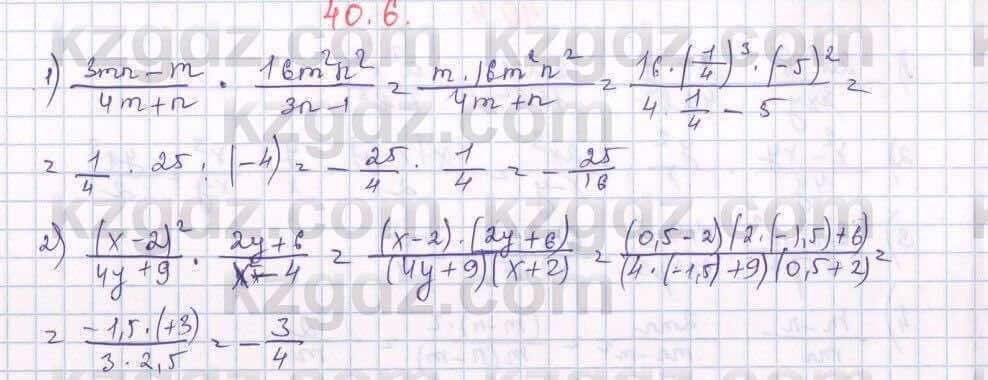 40.6.
1) (3mn - m)/(4m + n) · (16m²n²)/(3n - 1) = (m · 16m²n²)/(4m + n) = (16 · (1/4)³ · (-5)²)/(4 · 1/4 - 5) =
= 1/4 · 25 : (-4) = - 25/4 · 1/4 = - 25/16
2) (x-2)²/(4y+9) · (2y+6)/(x²-4) = ((x-2) · (2y+6))/((4y+9)(x+2)) = ((0,5-2)(2·(-1,5)+6))/((4·(-1,5)+9)(0,5+2)) =
= (-1,5·(+3))/(3·2,5) = - 3/4
kzgdz.com kzgdz.com
kzgdz.com
kzgdz.com kzgdz.com
kzgdz.com
kzgdz.com kzgdz.com